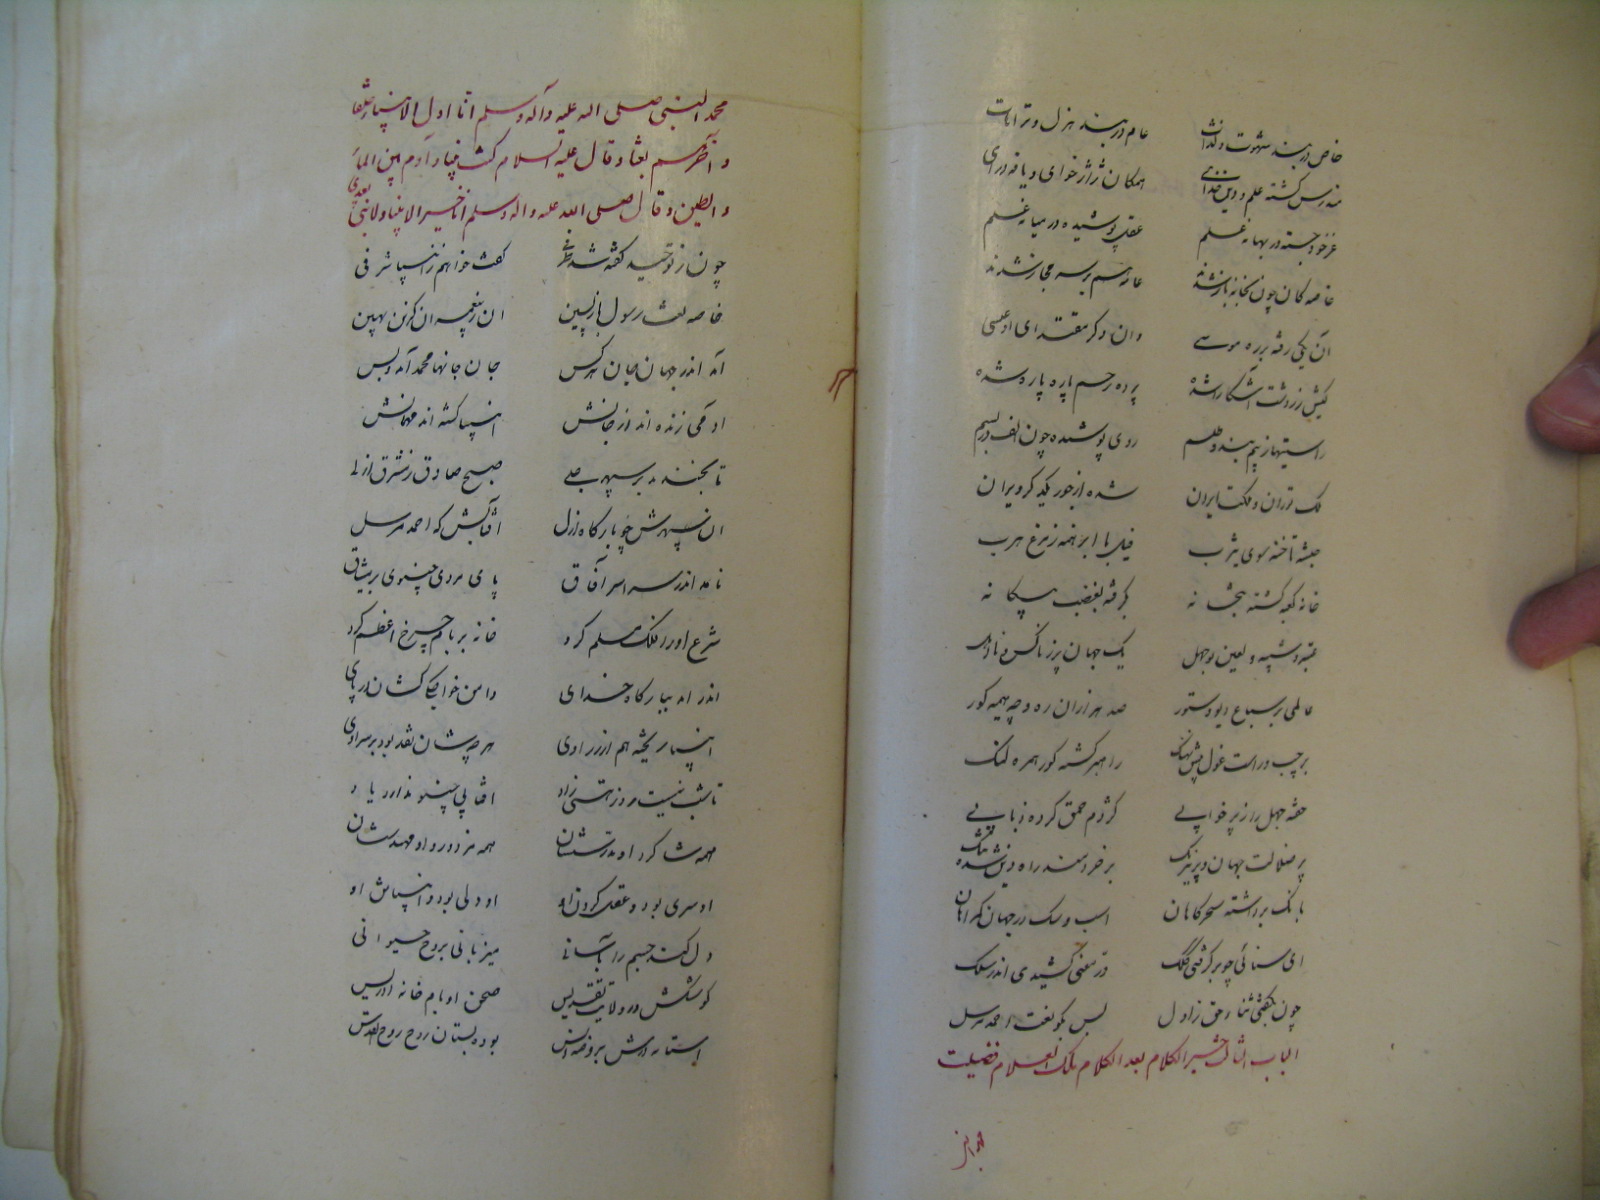 خاص در بند شهوت و لذات عام در بند هزل و ترهات
مندرس گشته علم و دین خدای همگان ژاژخوای و یافه درای
عز خود جسته در بهانه علم عقل پوشیده در میانه علم
خاصه کان چون بخانه باز شدند عامه هم بر سر مجاز شدند
آن یکی رفته بر ره موسی وان دگر مقتدای او عیسی
کیش زردشت آشکارا شده پرده رحم پاره پاره شده
راستیها ز بیم بند و طلسم روی پوشیده چون الف در بسم
ملک توران و ملکت ایران شده از جور یکدگر ویران
حبشه تاخته سوی یثرب فیل با ابرهه ز مرغ هرب
خانه کعبه گشته بتخانه بگرفته بغضب بیگانه
عتبه و شیبه و لعین بوجهل یک جهان پر ز ناکس و نااهل
عالمی پر سباع و دیو و ستور صد هزاران ره و چه و همه کور
بر چپ و راست غول و پیش نهنگ راهبر گشته کور همره لنگ
خفته جهل را ز پر خوابی کژدم حمق کرده دبابی
پر ضلالت جهان و پر نیرنگ بر خردمند راه دین شده تنگ
بانگ برداشته سحرگاهان اسب و سگ در جهان گمراهان
ای سنائی چو برگرفتی کلک در معنی کشیدی اندر سلک
چون بگفتی ثناء حق ز اول پس بگو نعت احمد مرسل
الباب الثالث خیر الکلام بعد الکلام ملک العلام فضیلت
محمد النبی صلی الله علیه وآله وسلم انا اول الانبیاء خلقا
و آخرهم بعثا و قال علیه السلام کنت نبیا و آدم بین الماء
و الطین و قال صلی الله علیه واله وسلم انا خیر الانبیاء ولا نبی بعدی
چون ز توحید گفته شد طرفی گفت خواهم ز انبیا شرفی
خاصه نعت رسول بازپسین ان ز پیغمبران گزین بهین
آمد اندر جهان جان هر کس جان جانها محمد آمد و بس
آدمی زنده اند از جانش انبیا گشته اند مهمانش
تا بخندید بر سپهر جلی صبح صادق ز مشرق ازلی
ان سپهرش چو بارگاه ازل آفتابش که احمد مرسل
نامد اندر سراسر آفاق پای مردی چنوی بر میثاق
شرع او را فلک مسلم کرد خانه بر بام چرخ اعظم کرد
اندر امد ببارگاه خدای دامن خواجگی کشان در پای
انبیا ریخته هم از زر اوی هر چه شان نقد بود بر سر اوی
تا شب نیست روز هستی زاد آفتابی چنو ندارد یاد
همه شاگرد او مدرسشان همه مزدور و او مهندسشان
او سری بود و عقل گردن او او دلی بود و انبیا تن او
دل کند جسم را بآسانی میزبانی بروح حیوانی
کوششش در ولایت تقدیس صحن او بام خانه ادریس
آستانه درش بروضه انس بود بستان روح روح القدس